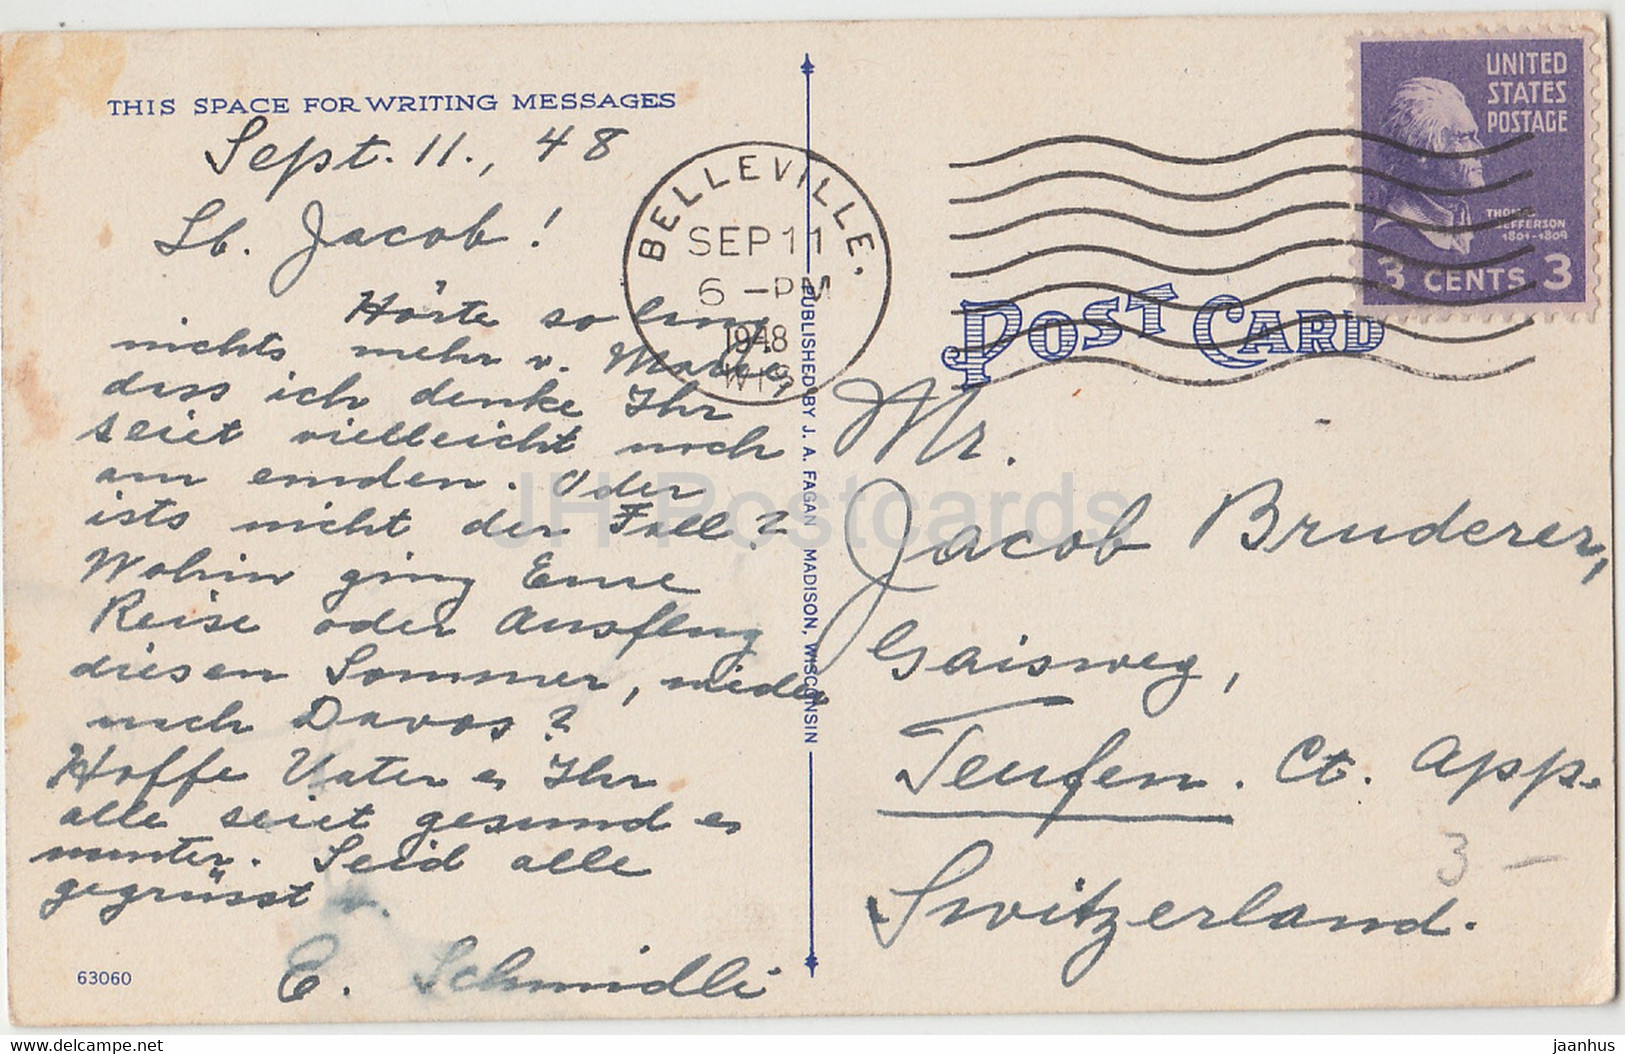 THIS SPACE FOR WRITING MESSAGES
Sept. 11., 48
Lb. Jacob!
Hörte so lang
nichts mehr v.
dass ich denke Ihr
seiet vielleicht noch
am emden. Oder
ists nicht der Fall?
Wohin ging Eure
Reise oder Ausflug
diesen Sommer, wieder
nach Davos?
Hoffe Vater & Ihr
alle seiet gesund &
munter. Seid alle
gegrüsst v.
E. Schmidli
63060
BELLEVILLE,
SEP 11
6 - PM
1948
WIS
PUBLISHED BY J. A. FAGAN MADISON, WISCONSIN
UNITED
STATES
POSTAGE
THOMAS
JEFFERSON
1801-1809
3 CENTS 3
POST CARD
Mr.
Jacob Bruderer,
Gaisweg,
Teufen. Ct. App.
Switzerland.
3 –
JH Postcards
delcampe.net
jaanhus